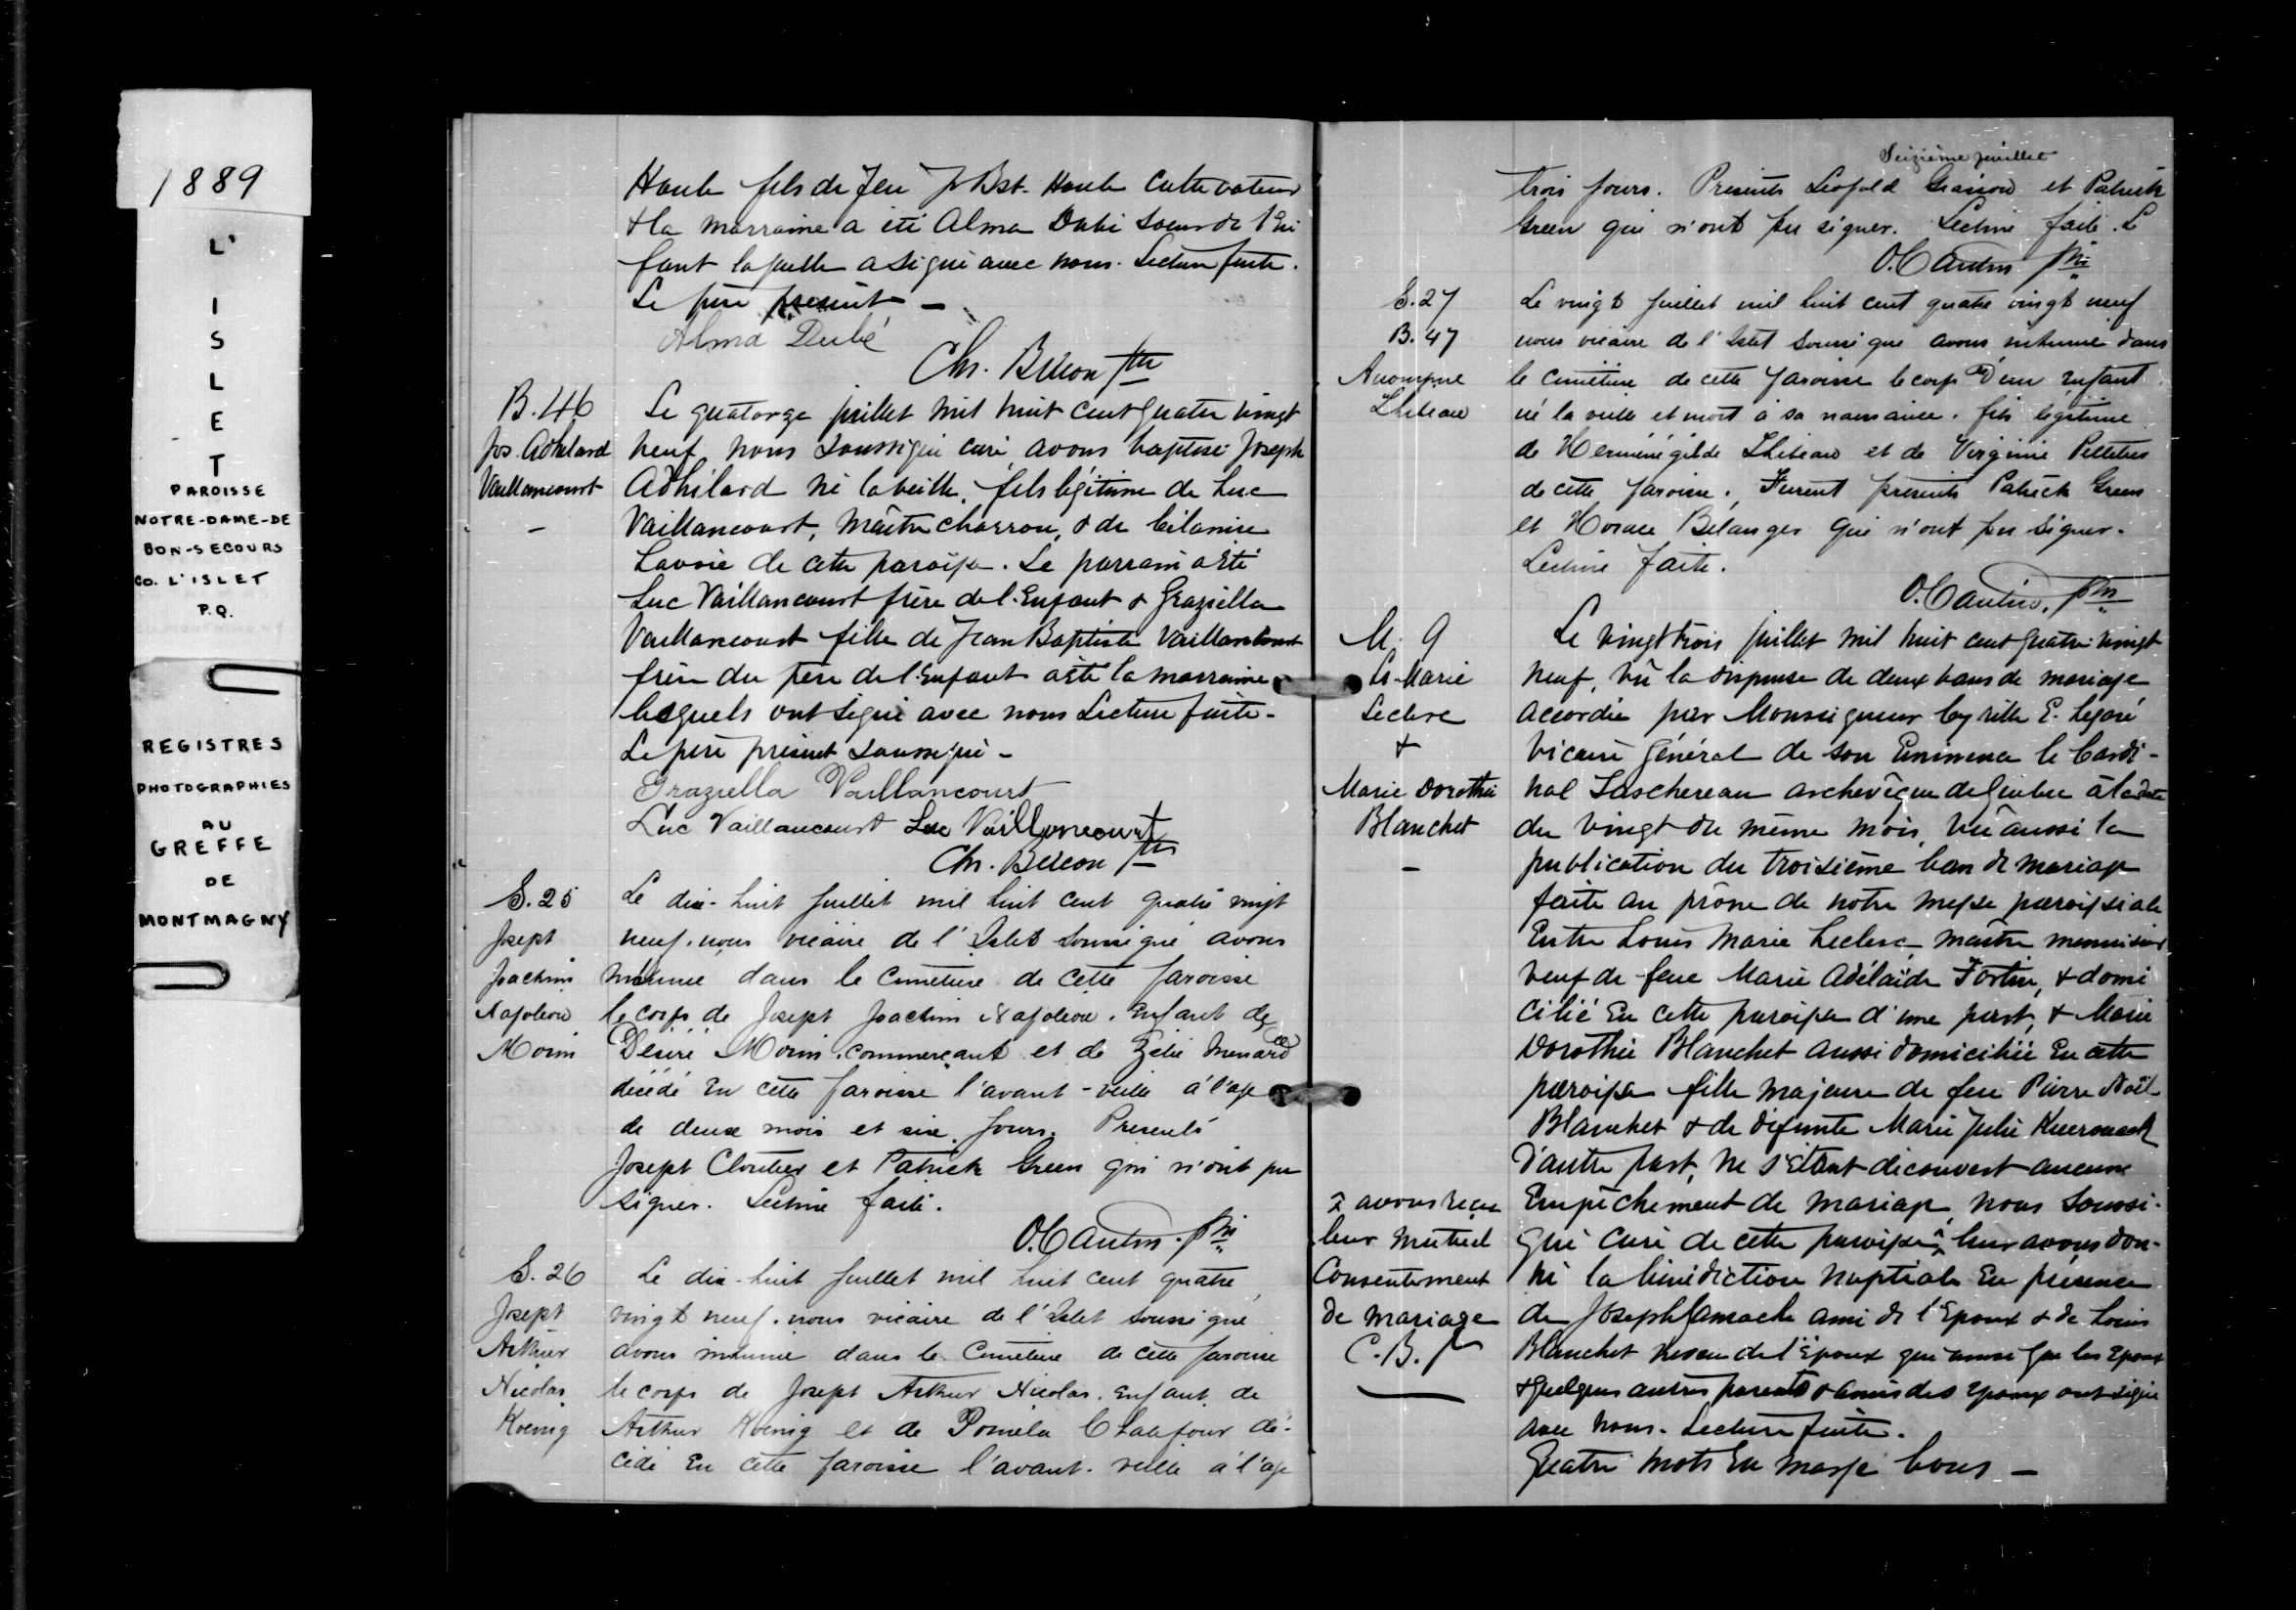 1889
L'
I
S
L
E
T
PAROISSE
NOTRE-DAME-DE
BON-SECOURS
CO. L'ISLET
P.Q.
REGISTRES
PHOTOGRAPHIES
AU
GREFFE
DE
MONTMAGNY
fils de feu Bst. cultivateur
& la marraine a été Alma Dubé soeur de l'En
fant laquelle a signé avec nous. Lecture faite.
Le père présent —
Alma Dubé
Ch. Bacon Ptre
B. 46
Jos. Adhélard
Vaillancourt
—
Le quatorze juillet mil huit cent quatre vingt
neuf nous soussigné curé avons baptisé Joseph
Adhélard né la veille, fils légitime de Luc
Vaillancourt, maître charron, & de Célanire
Lavoie de cette paroisse. Le parrain a été
Luc Vaillancourt frère de l'Enfant & Graziella
Vaillancourt fille de Jean Baptiste Vaillancourt
frère du père de l'Enfant a été la marraine
lesquels ont signé avec nous Lecture faite-
Le père présent soussigné -
Graziella Vaillancourt
Luc Vaillancourt Luc Vaillancourt
Ch. Bacon Ptre
S. 25
Josept
Joachim
Napoléon
Morin
Le dix-huit Juillet mil huit cent quatre vingt
neuf. nous vicaire de l'Islet soussigné avons
inhumé dans le cimetière de cette paroisse
le corps de Josept Joachim Napoléon. Enfant de
Désiré Morin. commerçant et de Zélie Menard
décédé en cette paroisse l'avant-veille à l'age
de deux mois et six jours. Présents
Josept Cloutier et Patrick Green qui n'ont pu
signer. Lecture faite.
O. Cantin. Ptre
S. 26
Josept
Arthur
Nicolas
Koenig
Le dix-huit Juillet mil huit cent quatre
vingt neuf. nous vicaire de l'Islet soussigné
avons inhumé dans le cimetière de cette paroisse
le corps de Josept Arthur Nicolas. Enfant de
Arthur Koenig et de dé-
cédé en cette paroisse l'avant-veille à l'age
Seizième feuillet
trois jours. Présents Léopold et Patrick
Green qui n'ont pu signer. Lecture faite.
O. Cantin Ptre
S. 27
B. 47
Anonyme
Le vingt Juillet mil huit cent quatre vingt neuf
nous vicaire de l'Islet soussigné avons inhumé dans
le cimetière de cette paroisse le corps d'un Enfant
né la veille et mort à sa naissance. fils légitime
de Herménégilde et de Virginie Pelletier
de cette paroisse. Furent présents Patrick Green
et Horace Bélanger qui n'ont pu signer.
Lecture faite.
O. Cantin, Ptre
M. 9
Ls-Marie
Leclerc
+
Marie Dorothée
Blanchet
—
Le vingt trois juillet mil huit cent quatre vingt
neuf, vû la dispense de deux bans de mariage
accordée par Monseigneur Cyrille E. Légaré
Vicaire Général de son Eminence le Cardi-
nal Taschereau archevêque de Québec à la date
du vingt du même mois, vû aussi la
publication du troisième ban de mariage
faite au prône de notre messe paroissiale
Entre Louis Marie Leclerc maître menuisier
veuf de feue Marie Adélaïde Fortin, & domi
cilié en cette paroisse d'une part, & Marie
Dorothée Blanchet aussi domiciliée en cette
paroisse fille majeure de feu Pierre Noël
Blanchet & de défunte Marie Julie Kuerouack
d'autre part, ne s'étant découvert aucun
Empêchement de mariage, nous soussi-
gné curé de cette paroisse leur avons don-
né la bénédiction nuptiale En présence
de Joseph Gamache ami de l'Epoux & de Louis
Blanchet neveu de l'Epoux qui ainsi que les Epoux
& quelques autres parents & amis des Epoux ont signé
avec nous. Lecture faite.
Quatre mots en marge bons —
avons reçu
leur mutuel
Consentement
de mariage
C. B. Ptre